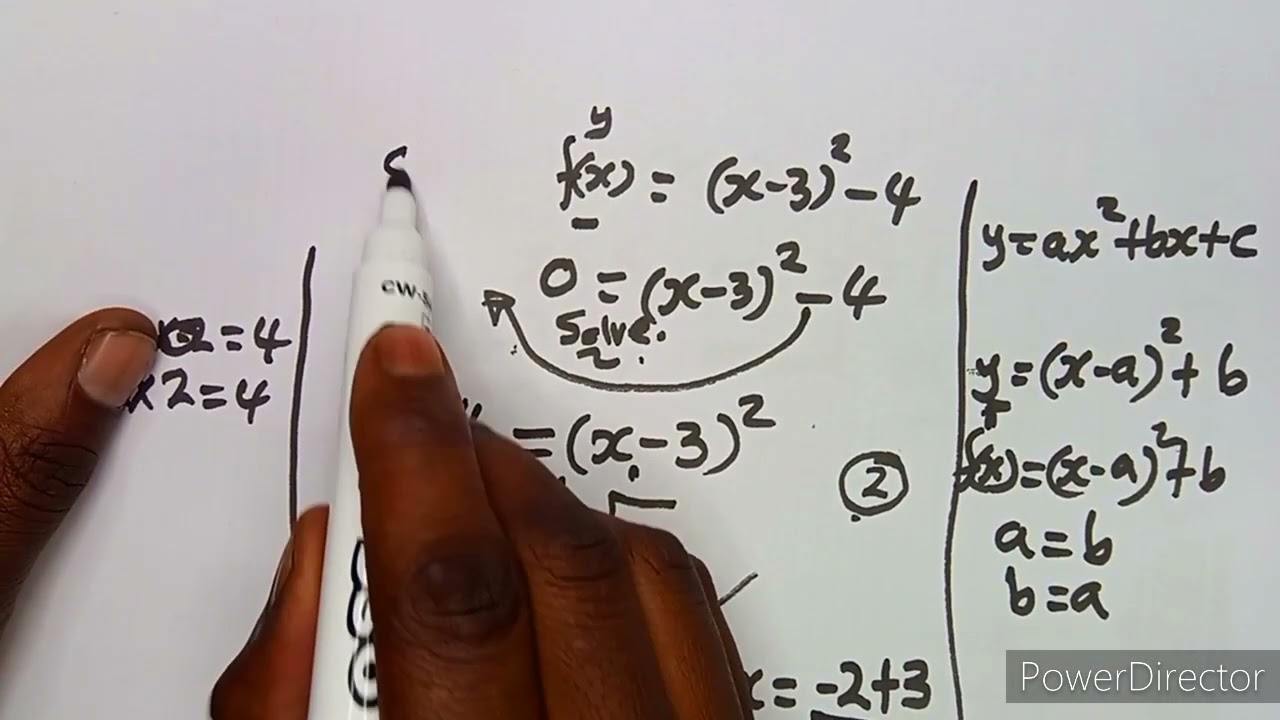 x2=4
y
f(x) = (x-3)² - 4
0 = (x-3)² - 4
Solve.
= (x-3)²
②
x = -2+3
y = ax² + bx + c
y = (x-a)² + b
f(x) = (x-a)² + b
a = b
b = a
cw-
PowerDirector